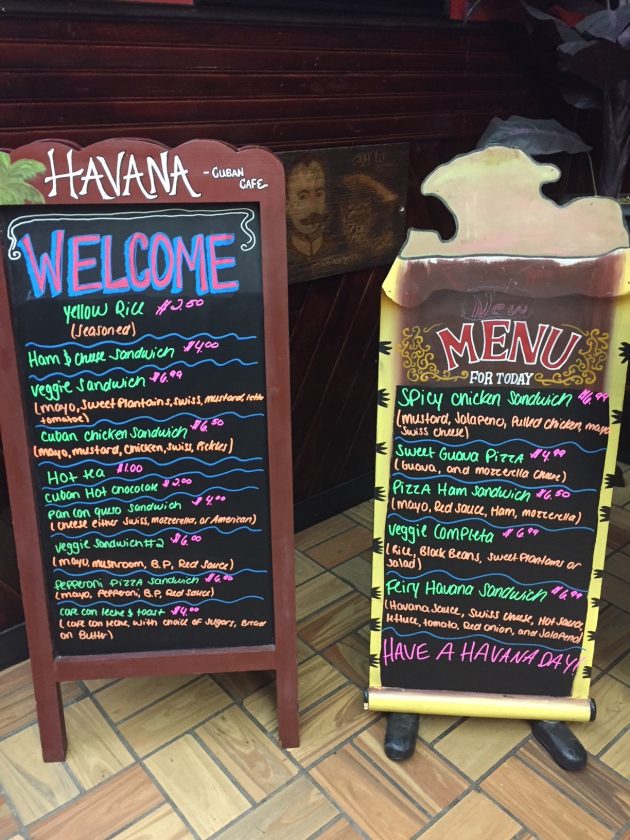 HAVANA - CUBAN CAFE
WELCOME
Yellow Rice $2.50
(seasoned)
Ham & cheese sandwich $4.00
veggie sandwich $6.99
(mayo, sweet plantains, swiss, mustard,
tomatoe)
Cuban chicken sandwich $6.50
(mayo, mustard, chicken, swiss, Pickles)
Hot tea $1.00
Cuban Hot chocolate $2.00
Pan con queso sandwich $4.00
(cheese either swiss, mozzerella, or American)
veggie sandwich #2 $6.00
(mayo mushroom, B.P, Red sauce)
Pepperoni Pizza sandwich
(mayo, Pepperoni, B.P, Red sauce)
cafe con leche & toast $4.00
(cafe con leche, with choice of sugars, Bread
on Butter)
New
MENU
FOR TODAY
Spicy chicken sandwich $6.99
(mustard, Jalapeno, Pulled chicken, mayo
Swiss cheese)
Sweet Guava Pizza $4.99
(Guava, and mozzerella cheese)
Pizza Ham sandwich $6.50
(mayo, Red sauce, Ham, mozzerella)
veggie Completa $6.99
(Rice, Black Beans, sweet Plantains or
salad)
Feiry Havana sandwich $6.99
(Havana sauce, Swiss cheese, Hot sauce,
lettuce, tomato, Red onion, and Jalapeno)
HAVE A HAVANA DAY!